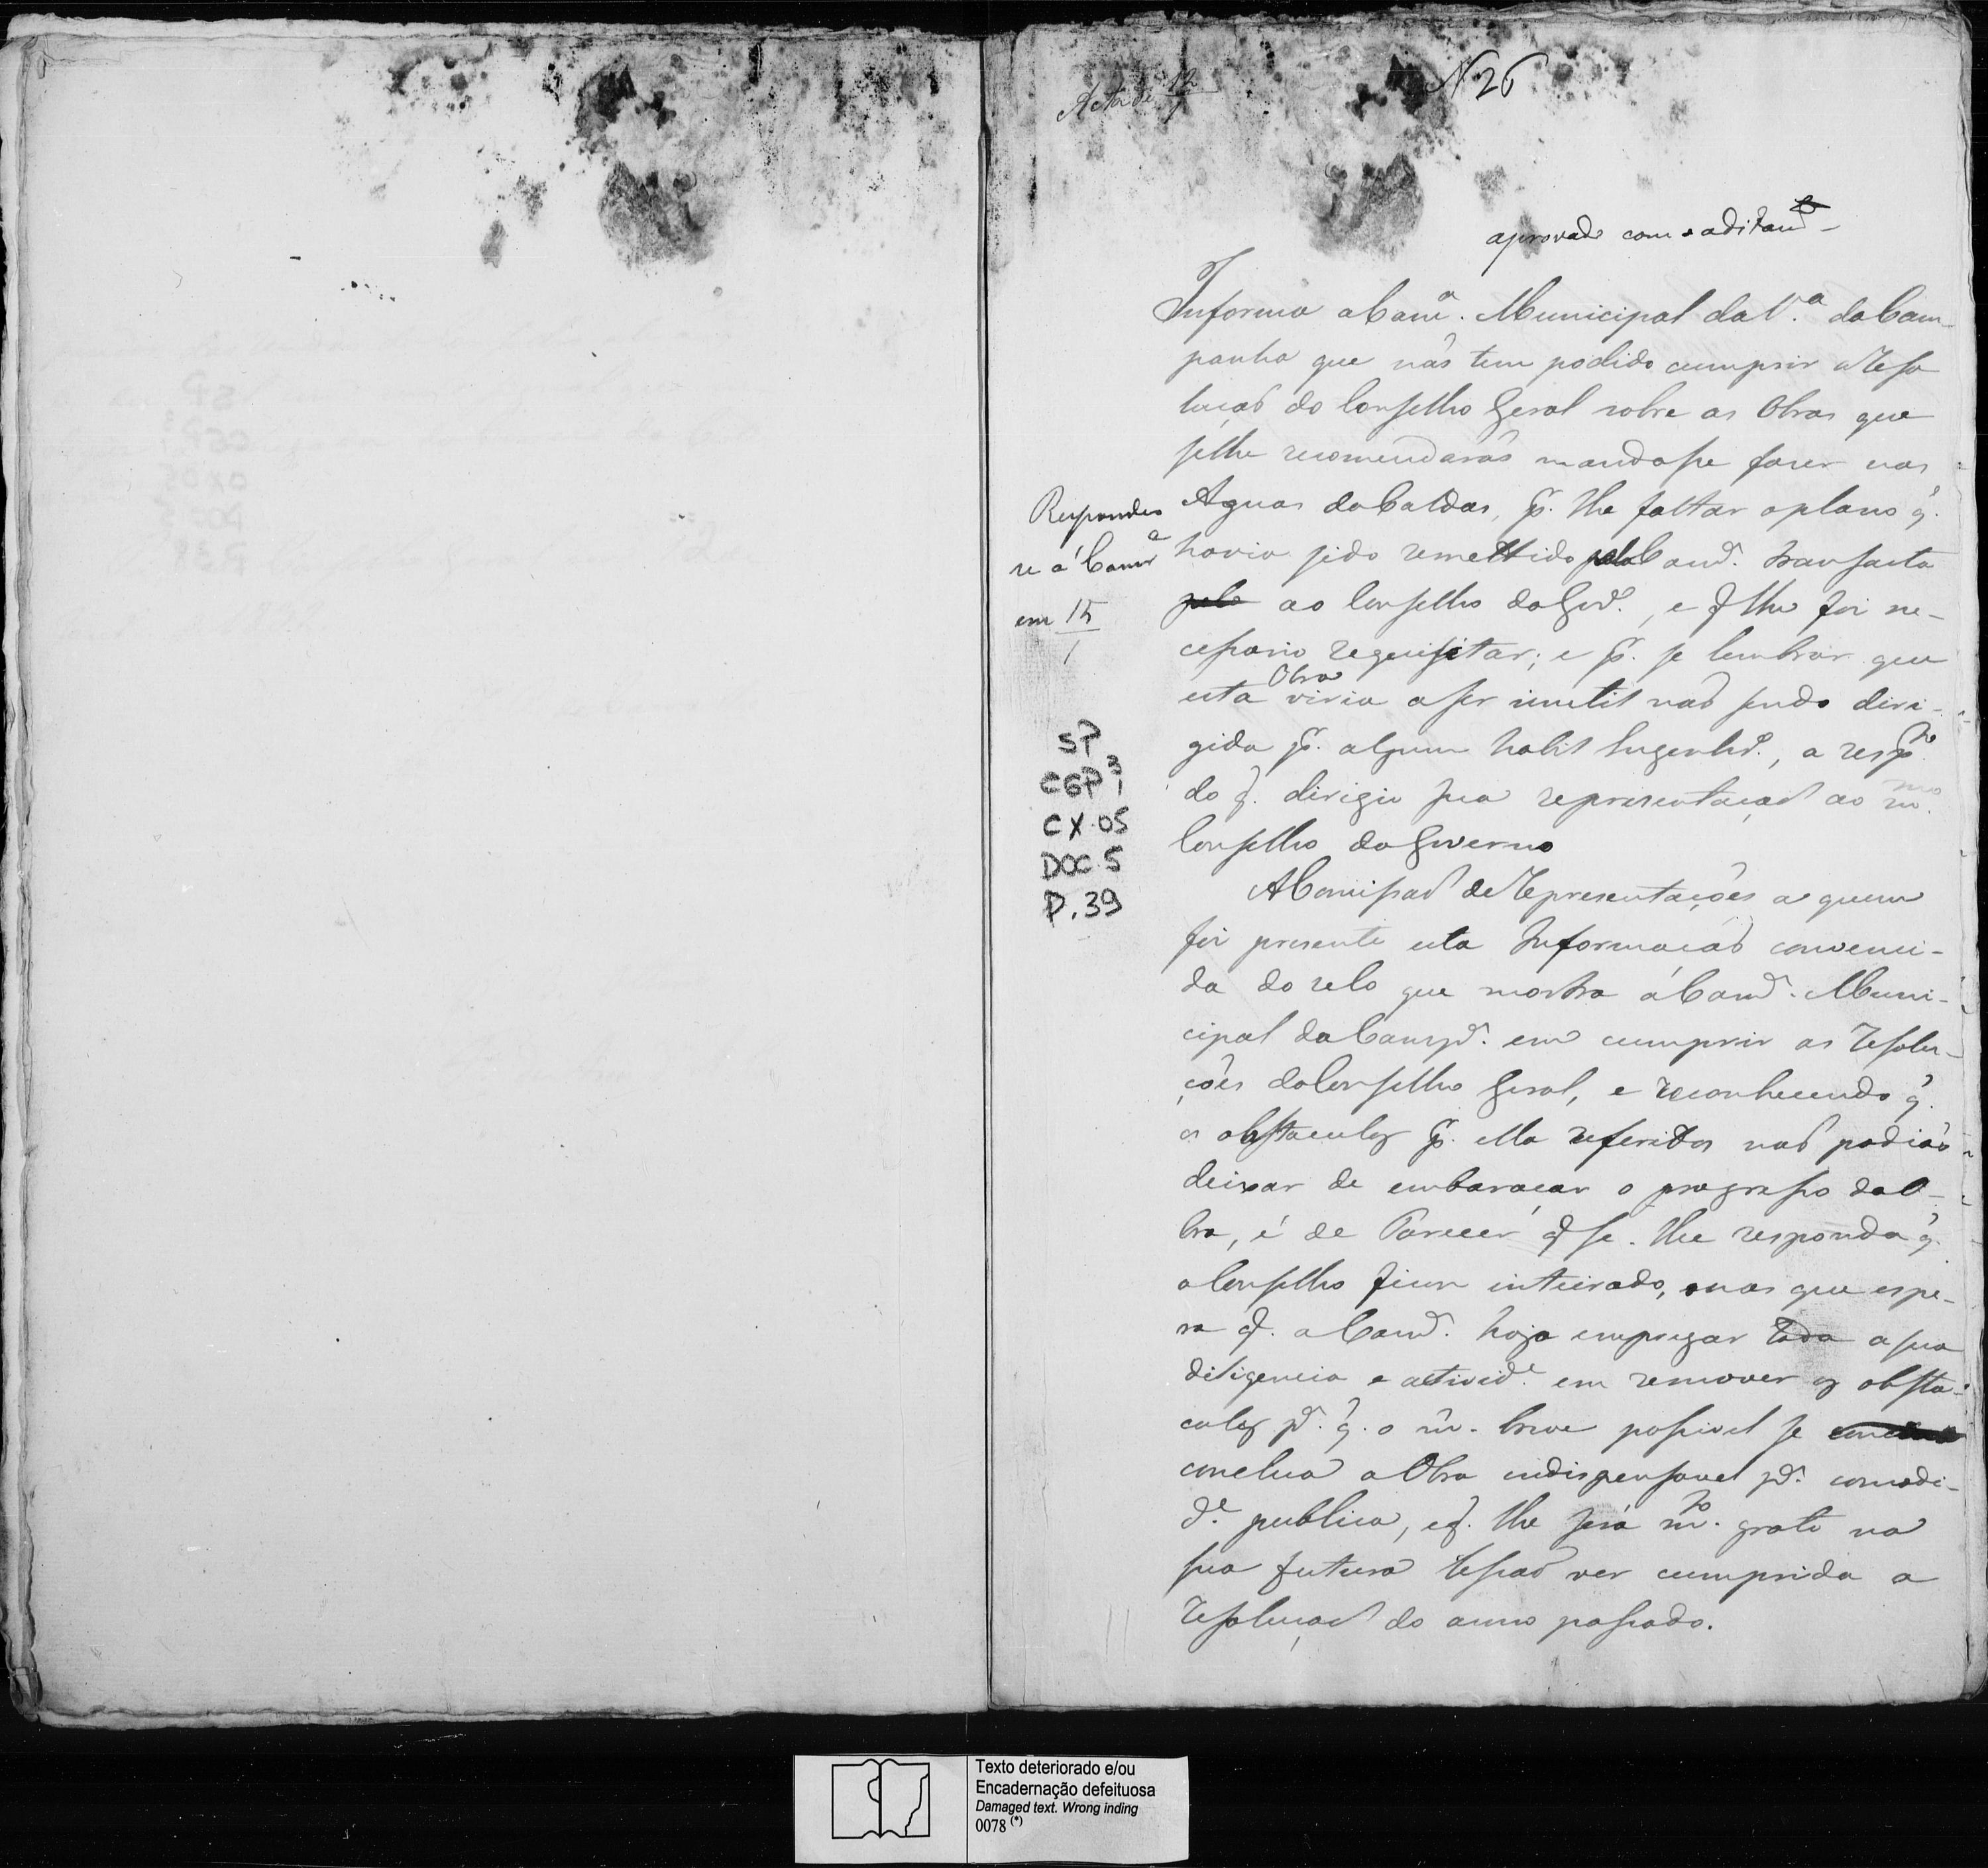 Acta de 12/1
N 26
aprovado com o aditam.to
Informa a Cam.a Municipal da V.a da Cam-
panha que nao tem podido cumprir a Reso
luçaõ do Conselho Geral sobre as Obras que
selhe recomendaraõ mandasse fazer nas
Aguas da Caldas, p.r lhe faltar o plano q.
havia sido remettido pela Cam.a transacta
pelo ao Conselho do Gov.o, e q lhe foi ne-
cessario requisitar; e p.r se lembrar que
esta Obra viria a ser inutil naõ sendo diri-
gida p.r algum habil Engenhr.o, a resp.to
do q. dirigiu sua representaçaõ ao m.mo
Conselho do Governo
A Comissaõ de Representações a quem
foi presente esta Informaçaõ convenci-
da do zelo que mostra a Cam.a Muni-
cipal da Camp.a em cumprir as Resolu-
ções do Conselho Geral, e reconhecendo q.
os obstaculos p.r ella referidos naõ podiaõ
deixar de embaraçar o progresso da O-
bra, é de Parecer q se lhe responda q.
o Conselho ficou inteirado, mas que espe-
ra q. a Cam.a haja empregar toda a sua
diligencia e activid.e em remover os obsta-
culos p.a q. o m. breve possivel se
conclua a Obra indispensavel p.a comodi-
d.e publica, e q. lhe será m.to grato na
sua futura Sessaõ ver cumprida a
Resoluçaõ do anno passado.
Respondeo
se á Camr.a
em 15/1
SP
CGP 3
1
CX.05
DOC.5
P.39
Texto deteriorado e/ou
Encadernação defeituosa
Damaged text. Wrong inding
0078 (*)